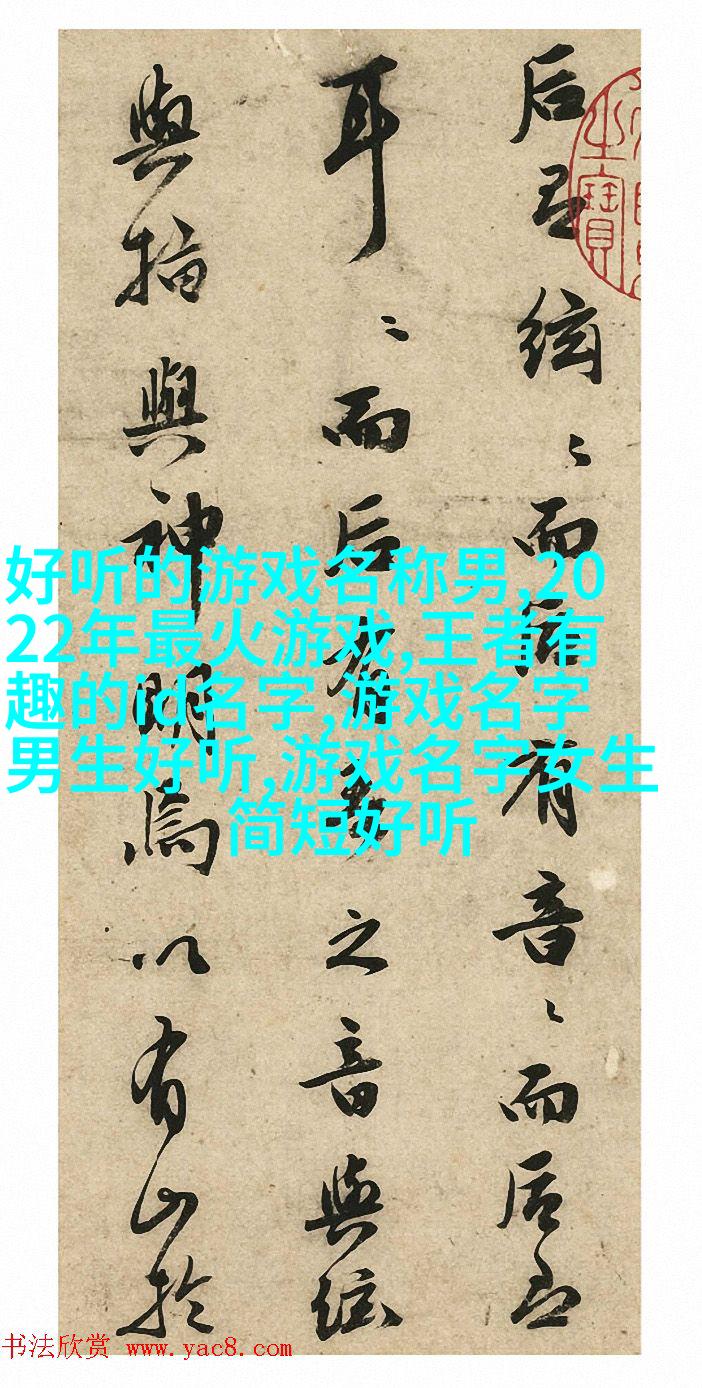 后絃〻而後有音〻而后
耳〻而后有之音與絃
與指與神明焉以有山於
好听的游戏名称男,20
22年最火游戏,王者有
趣的id名字,游戏名字
男生好听,游戏名字女生
简短好听
书法欣赏 www.yac8.com